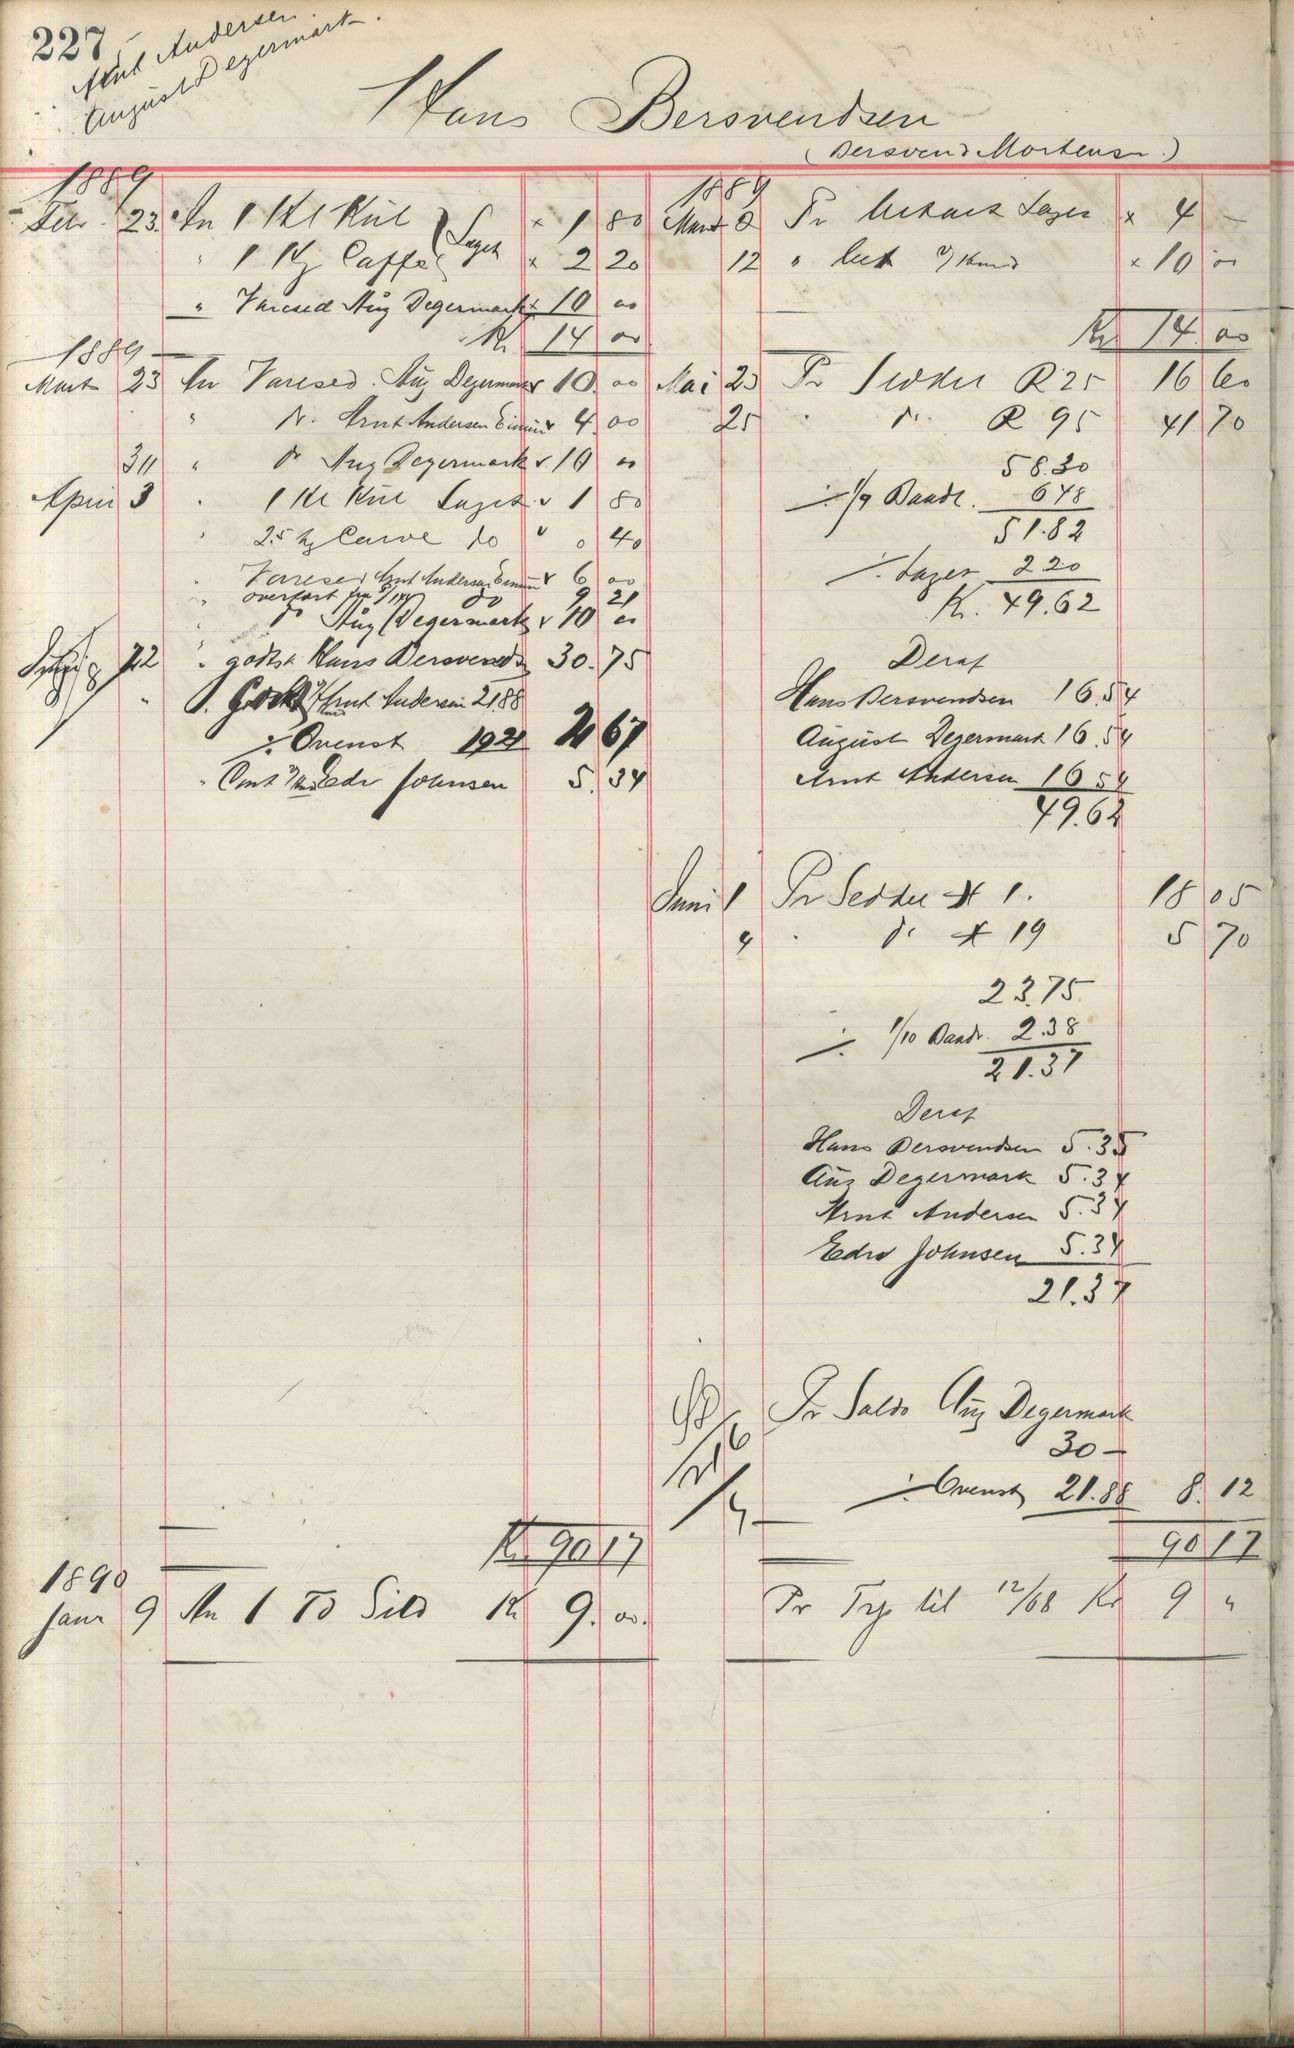 227
Arnt Andersen.
August Degermark.
Hans Bersvendsen
(Bersvend Mortensen.)
1889
Febr. 23. An 1 Hl Kul } Lager × 1 80
" 1 Kg Caffe × 2 20
" Varesed Aug Degermark × 10 00
Kr 14 00
1889
Marts 23 An Varesed. Aug Degermark v 10. 00
" do. Arnt Andersen v 4. 00
30 " do Aug Degermark v. 10 00
April 3 " 1 Hl Kul Lager v 1 80
" 2.5 Carve do v 0 40
" Varesed Arnt Andersen v 6 00
" overført do 9 21
" do Aug Degermark v 10 00
" godtsk Hans Bersvends 30. 75
" Arnt Andersen 21.88
÷ Ovenst 19 21 2 67
" Cont Edv Johnsen 5. 34
Kr 90 17
1890
Janr 9 An 1 Td Sild Kr 9. 00.
1889
Mart Pr Lager × 4 –
12 " × 10 00
Kr 14. 00
Mai 23 Pr Seddel R 25 16 60
25 " do. R 95 41. 70
58.30
÷ 1/9 Baadl. 6 48
51.82
÷ Lager 2 20
K. 49.62
Deraf
Hans Bersvendsen 16.54
August Degermark 16.54
Arnt Andersen 16 54
49.62
Juni 1 Pr Seddel 1. 18 05
4 " do 19 5 70
23.75
÷ 1/10 Baadl. 2.38
21.37
Deraf
Hans Bersvendsen 5.35
Aug Degermark 5.34
Arnt Andersen 5.34
Edv Johnsen 5.34
21.37
Pr Saldo Aug Degermark
30 –
÷ Ovenst 21.88 8. 12
90 17
Pr Trp til 12/68 Kr 9 "